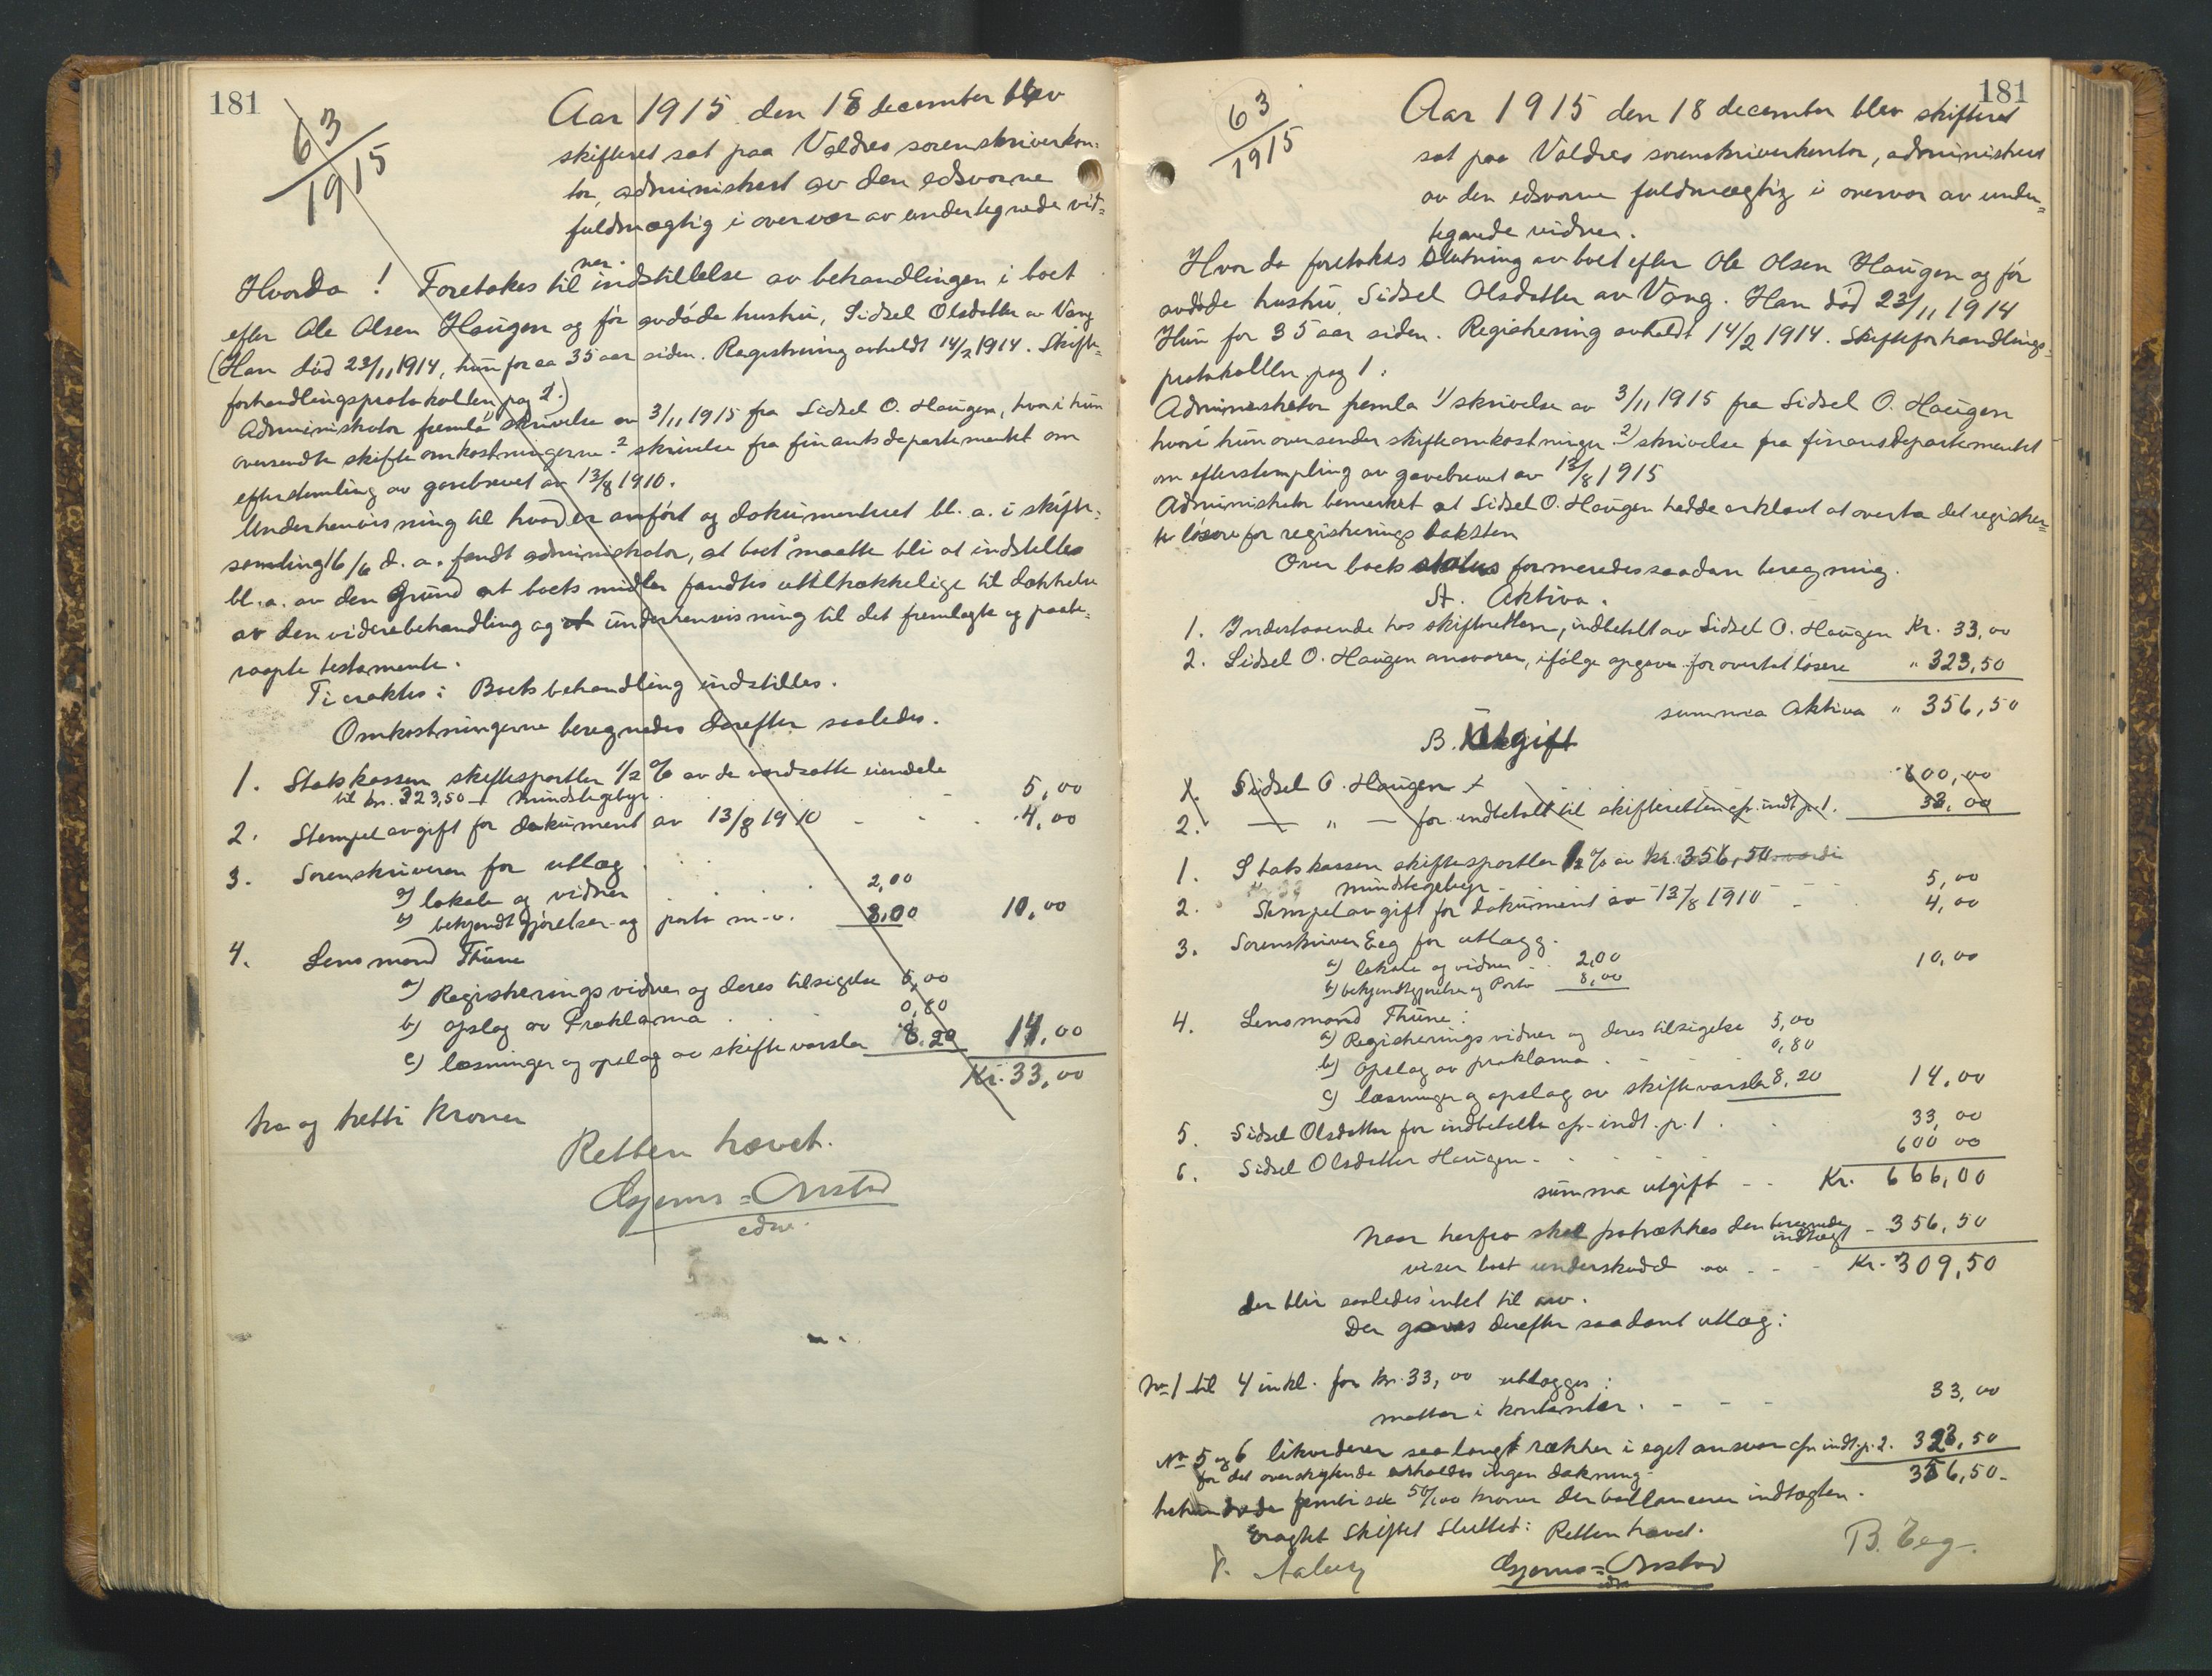 181
63
1915
Aar 1915 den 18 december blev
skifteret sat paa Valdres sorenskriverkon-
tor, administrert av den edsvorne
fuldmægtig i overvær av undertegnede vid-
ner.
Hvorda! Foretokes til indstillelse av behandlingen i boet
efter Ole Olsen Haugen og før avdøde hustru, Sidsel Olsdatter av Vang
(Han død 23/11 1914, hun for ca 35 aar siden. Registrering avholdt 14/2 1914. Skifte-
forhandlingsprotokollen pag 1.)
Administrator fremla 1) skrivelse av 3/11 1915 fra Sidsel O. Haugen, hvori hun
oversendte skifteomkostningerne 2) skrivelse fra finantsdepartementet om
efterstemling av gavebrevet av 13/8 1910.
Underhenvisning til hvad er anført og dokumentert bl. a. i skifte-
samling 16/6 d. a. fandt administrator, at boet maatte bli at indstilles
bl. a. av den Grund at boets midler fandtes utilstrækkelige til dækkelse
av den viderebehandling og at underhenvisning til det fremlagte og paabe-
raapte testamente.
Ti eraktes: Boets behandling indstilles.
Omkostningerne beregnedes derefter saaledes.
1. Statskassen skiftesportler 1/2 % av de værdsatte eiendele
til kr. 323,50 - mindstegebyr 5,00
2. Stempelavgift for dokument av 13/8 1910 - - - 4,00
3. Sorenskriveren for utlæg
a) lokale og vidner 2,00
b) bekjendtgjørelser og porto m.v. 8,00 10,00
4. Lensmand Thune
a) Registreringsvidner og deres tilsigelse 5,00
b) Opslag av Proklama 0,80
c) læsninger og opslag av skiftevarsler 8,20 14,00
Kr. 33,00
tre og tretti kroner
Retten hævet.
Gjems-Onstad
edsv.
181
63
1915
Aar 1915 den 18 december blev skifteret
sat paa Valdres sorenskriverkontor, administrert
av den edsvorne fuldmægtig i overvær av under-
tegnede vidner.
Hvor da foretokes Slutning av boet efter Ole Olsen Haugen og før
avdøde hustru, Sidsel Olsdatter av Vang. Han død 23/11 1914
Hun for 35 aar siden. Registrering avholdt 14/2 1914. Skifteforhandlings-
protokollen pag 1.
Administrator fremla 1) skrivelse av 3/11 1915 fra Sidsel O. Haugen
hvori hun oversender skifteomkostninger 2) skrivelse fra finansdepartementet
om efterstempling av gavebrevet av 13/8 1915
Administrator bemerket at Sidsel O. Haugen hadde erklært at overta det registrer-
te løsøre for registreringstaksten
Over boets status formeredes saadan beregning.
A. Aktiva.
1. Indestaaende hos skifteretten, indbetalt av Sidsel O. Haugen Kr. 33,00
2. Sidsel O. Haugen ansvarer, ifølge opgave for overtat løsøre " 323,50
summa Aktiva " 356,50
B. Utgift
1. Sidsel O. Haugen 600,00
2. — " — for indbetalt til skifteretten cfr. indt. p. 1. 33,00
1. Statskassen skiftesportler 1/2 % av kr. 356,50
mindstegebyr - - - 5,00
2. Stempelavgift for dokument av 13/8 1910 - 4,00
3. Sorenskriver Eeg for utlægg.
a) lokale og vidner 2,00 10,00
b) bekjendtgjørelser og Porto 8,00
4. Lensmand Thune:
a) Registreringsvidner og deres tilsigelse 5,00
b) Opslag av proklama 0,80
c) læsninger og opslag av skiftevarsler 8,20 14,00
5. Sidsel Olsdatter for indbetalte cfr. indt. p. 1 33,00
6. Sidsel Olsdatter Haugen 600 00
summa utgift - - Kr. 666,00
Naar herfra skal fratrækkes den beregnede indtægt - 356,50
viser boet underskudd av - - - Kr. 309,50
der blir saaledes intet til arv.
Der gjøres derefter saadant utlæg:
No 1 til 4 inkl. for kr. 33,00 utlægges:
mottar i kontanter. - - - 33,00
No 5 og 6 likviderer saa langt rækker i eget ansvar cfr. indt. p. 2. 323,50
for det overskytende erholdes ingen dækning 356,50 -
trehundrede femti sex 50/100 kroner der ballancerer indtægten.
Eragtet Skiftet Sluttet: Retten hævet.
Gjems-Onstad
edsv
B. Eeg.